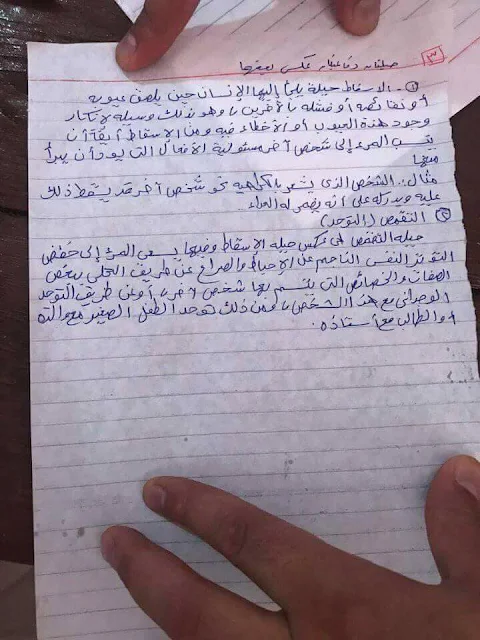 ٣ حيلتان دفاعيتان عكس بعضهما
① - الاسقاط حيلة يلجأ إليها الإنسان حين يلصق عيوبه
أو نقائصه أو فشله بالآخرين، وهو بذلك وسيلة لإنكار
وجود هذه العيوب أو الأخطاء فيه ومن الاسقاط أيضًا أن
ينسب المرء إلى شخص آخر مسئولية الأفعال التي يود أن يبرأ
منها
مثال:. الشخص الذي يشعر بالكراهية نحو شخص آخر قد يسقط ذلك
عليه ويدركه على أنه يضمر له العداء
② التقمص (التوحد)
حيلة التقمص هي عكس حيلة الاسقاط وفيها يسعى المرء إلى خفض
التوتر النفسي الناجم عن الإحباط والصراع عن طريق التحلي ببعض
الصفات والخصائص التي يتسم بها شخص آخر، أو عن طريق التوحد
الوجداني مع هذا الشخص، ومن ذلك توحد الطفل الصغير مع والده
أو الطالب مع أستاذه.